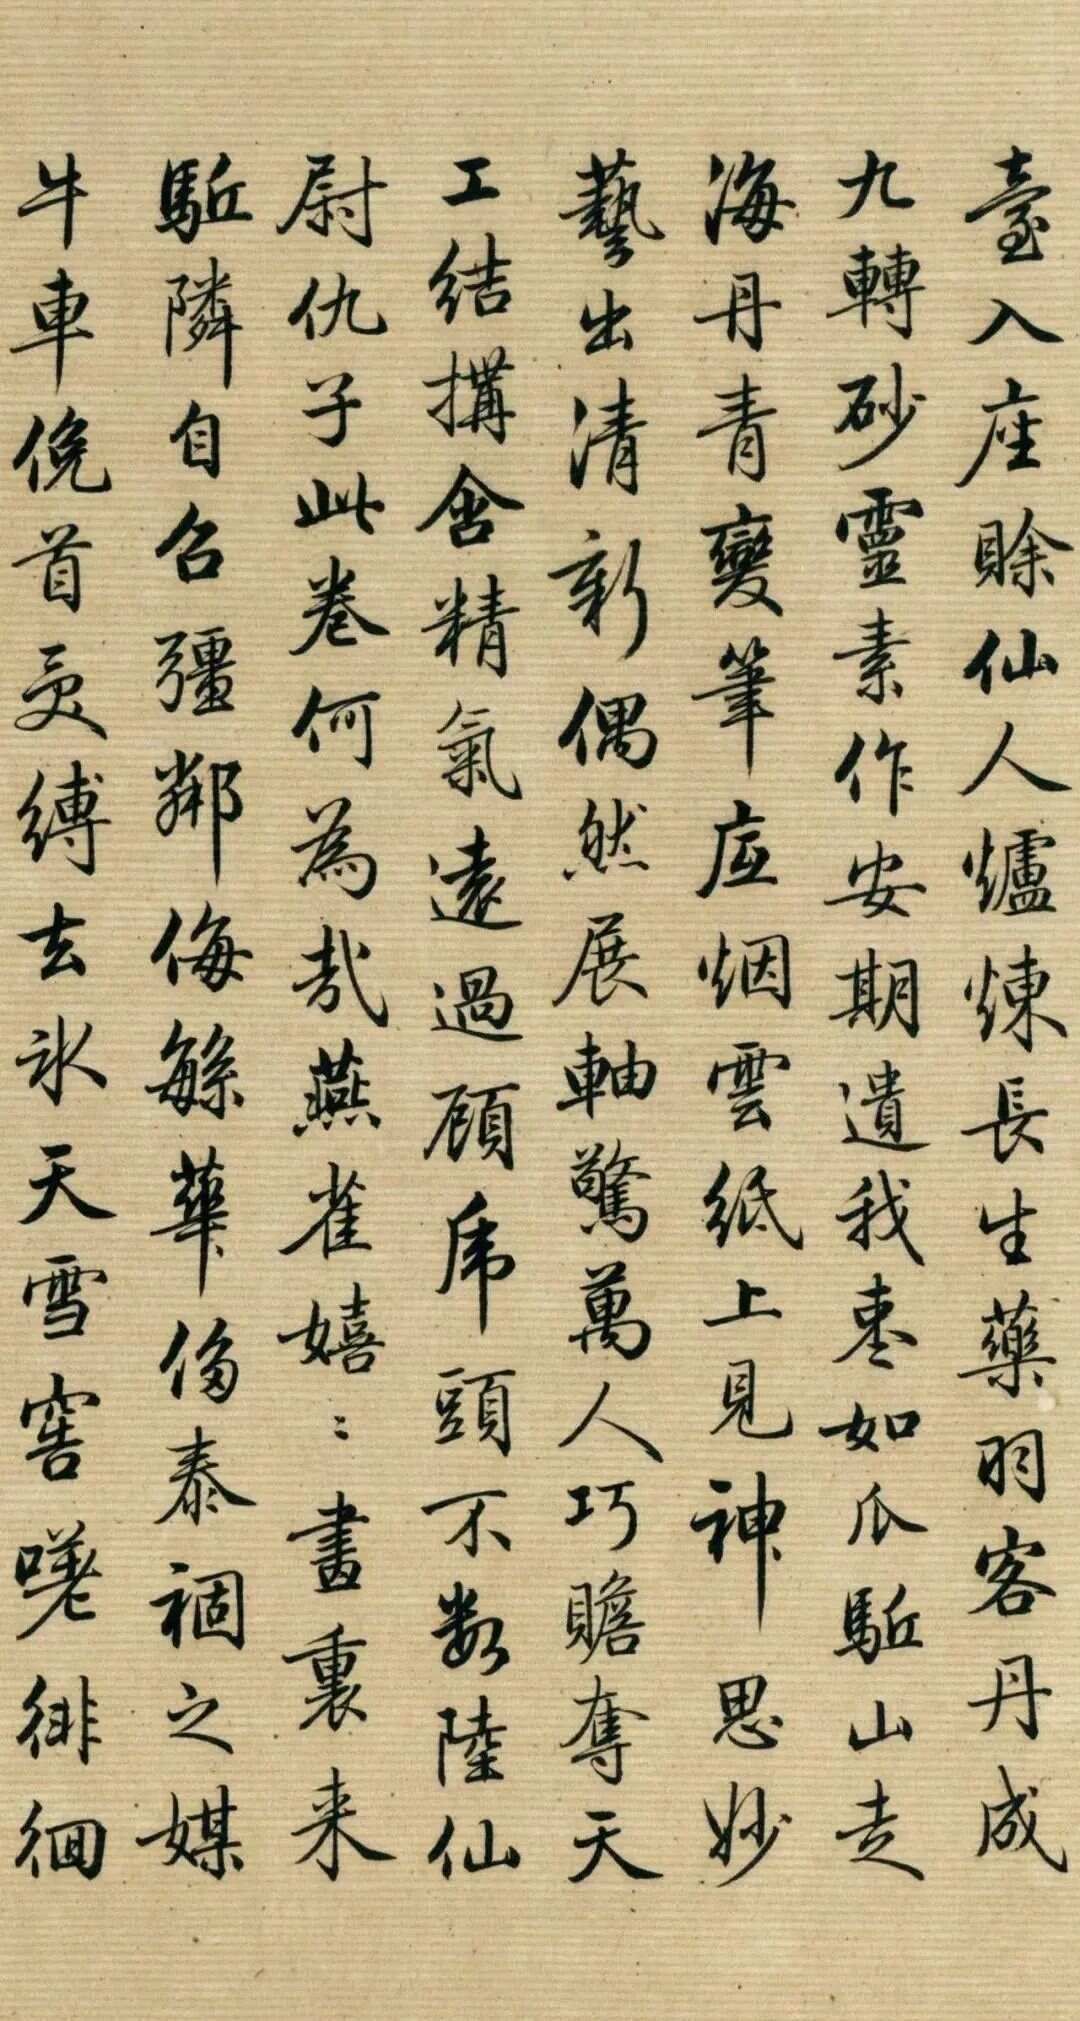 臺入座賒仙人爐煉長生藥羽客丹成
九轉砂靈素作安期遺我枣如瓜駈山走
海丹青變筆底烟雲紙上見神思妙
藝出清新偶然展軸驚萬人巧贍奪天
工結搆含精氣遠過顧虎頭不數陸仙
尉仇子此卷何為哉燕雀嬉〻畫裏来
駈隣自召彊鄰侮繇華侈泰禍之媒
牛車俛首受縛去氷天雪窖嘆徘徊